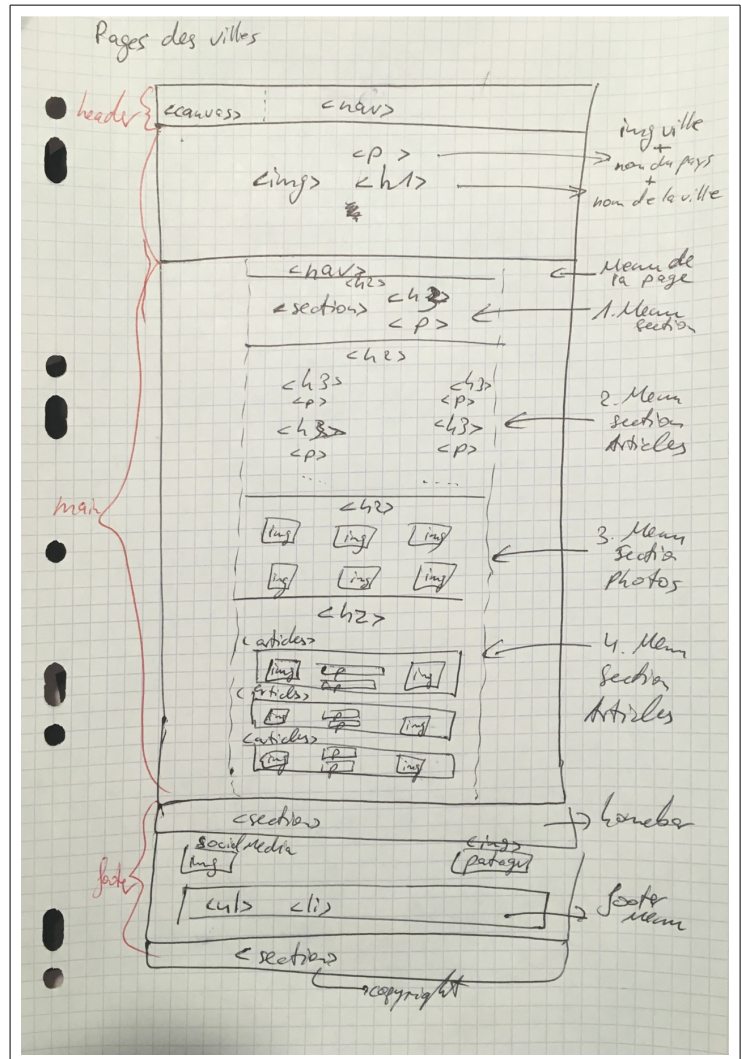 Pages des villes
header
<canvas> <nav>
<p>
<img> <h1>
img ville
+
nom du pays
+
nom de la ville
main
<nav>
Menu de
la page
<h2>
<section> <h3>
<p>
1. Menu
section
<h2>
<h3> <h3>
<p> <p>
<h3> <h3>
<p> <p>
.... ....
2. Menu
section
Articles
<h2>
img img img
img img img
3. Menu
section
Photos
<h2>
<articles>
img p img
p
<articles>
img p img
p
<articles>
img p img
p
4. Menu
section
Articles
footer
<section>
homebar
social Media <img>
img patager
<ul> <li>
footer
menu
<section>
copyright